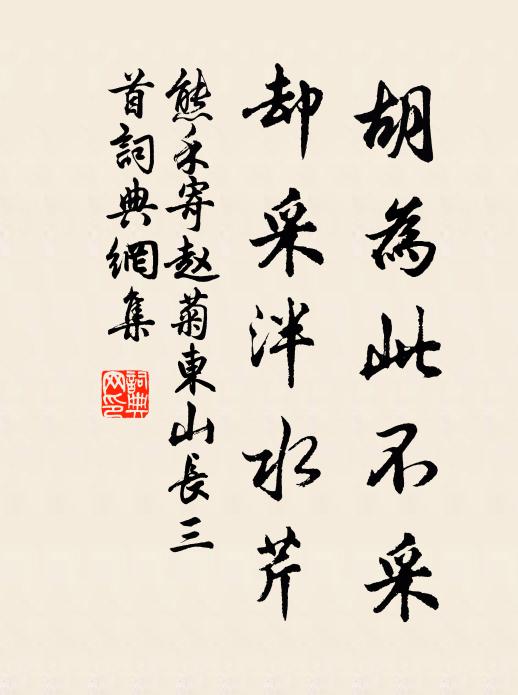 胡為此不采
却采泮水芹
熊禾寄赵菊東山長三
首詞典網集
詞典
网印